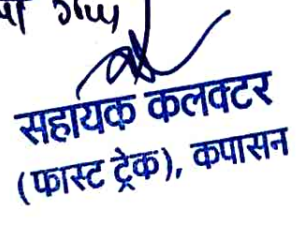 सहायक कलक्टर
(फास्ट ट्रेक), कपासन